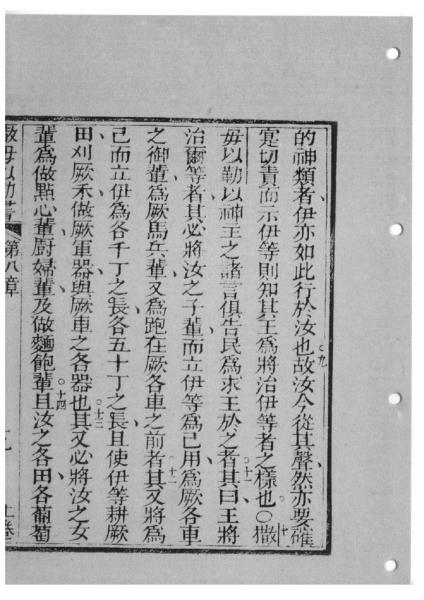 的神類者伊亦如此行於汝也故汝今從其聲然亦要確
九
寔切責而示伊等則知其王為將治伊等者之樣也○撒
十
毋以勒以神王之諸言俱告民為求王於之者其曰王將
十一
治爾等者其必將汝之子輩而立伊等為己用為厥各車
之御輩為厥馬兵輩又為跑在厥各車之前者其又將為
十二
己而立伊為各千丁之長各五十丁之長且使伊等耕厥
田刈厥禾做厥軍器與厥車之各器也其又必將汝之女
十三
輩為做點心輩廚婦輩及做麵飽輩且汝之各田各葡萄
十四
撒毋以勒書 第八章 上卷